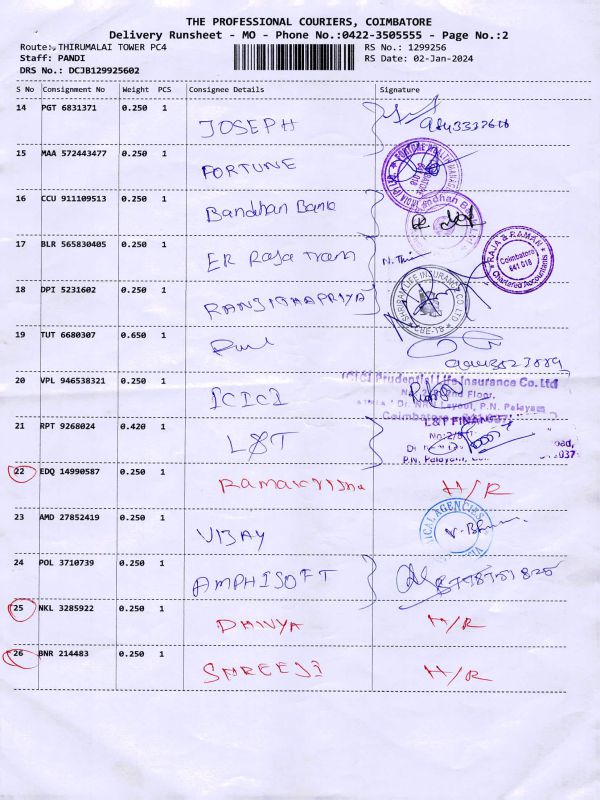 THE PROFESSIONAL COURIERS, COIMBATORE
Delivery Runsheet - MO - Phone No.:0422-3505555 - Page No.:2
Route: THIRUMALAI TOWER PC4 RS No.: 1299256
Staff: PANDI RS Date: 02-Jan-2024
DRS No.: DCJB129925602
S No Consignment No Weight PCS Consignee Details Signature
14 PGT 6831371 0.250 1 JOSEPH
15 MAA 572443477 0.250 1 FORTUNE
16 CCU 911109513 0.250 1 Bandhan Bank
17 BLR 565830405 0.250 1 ER Raja
RAJA & RAMAN
Coimbatore
641 018
Chartered Accountants
18 DPI 5231602 0.250 1 RANJITHAPRIYA
SHRIRAM LIFE INSURANCE CO LTD
CBE-18
19 TUT 6680307 0.650 1
20 VPL 946538321 0.250 1 ICICI
ICICI Prudential Life Insurance Co.Ltd
2nd Floor,
Layout, P.N. Palayam
Coimbatore
21 RPT 9268024 0.420 1 L&T
L&T FINANCE
P.N. Palayam,
22 EDQ 14990587 0.250 1 Ramakrishna H/R
23 AMD 27852419 0.250 1 VIJAY
24 POL 3710739 0.250 1 AMPHISOFT
25 NKL 3285922 0.250 1 DHIVYA H/R
26 BNR 214483 0.250 1 SHREEJI H/R